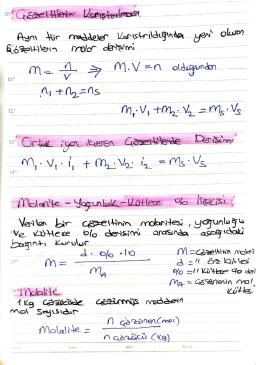 Çözeltilerin Karıştırılması
Aynı tür maddeler karıştırıldığında yeni oluşan
çözeltilerin molar derişimi
M = n/V ⇒ M.V = n olduğundan
n₁ + n₂ = nₛ
M₁.V₁ + M₂.V₂ = Mₛ.Vₛ
Ortak iyon içeren Çözeltilerde Derişim
M₁.V₁.i₁ + M₂.V₂.i₂ = Mₛ.Vₛ
Molarite - Yoğunluk - Kütlece % İlişkisi
Verilen bir çözeltinin molaritesi, yoğunluğu
ve kütlece % derişimi arasında aşağıdaki
bağıntı kurulur
M = d.%.10 / MA
M = Çözeltinin molaritesi
d = " öz kütlesi
% = " kütlece % derişimi
MA = Çözünenin mol kütlesi
Molalite
1 kg çözücüde çözünmüş maddenin
mol sayısıdır
Molalite = n çözünen (mol) / n çözücü (kg)